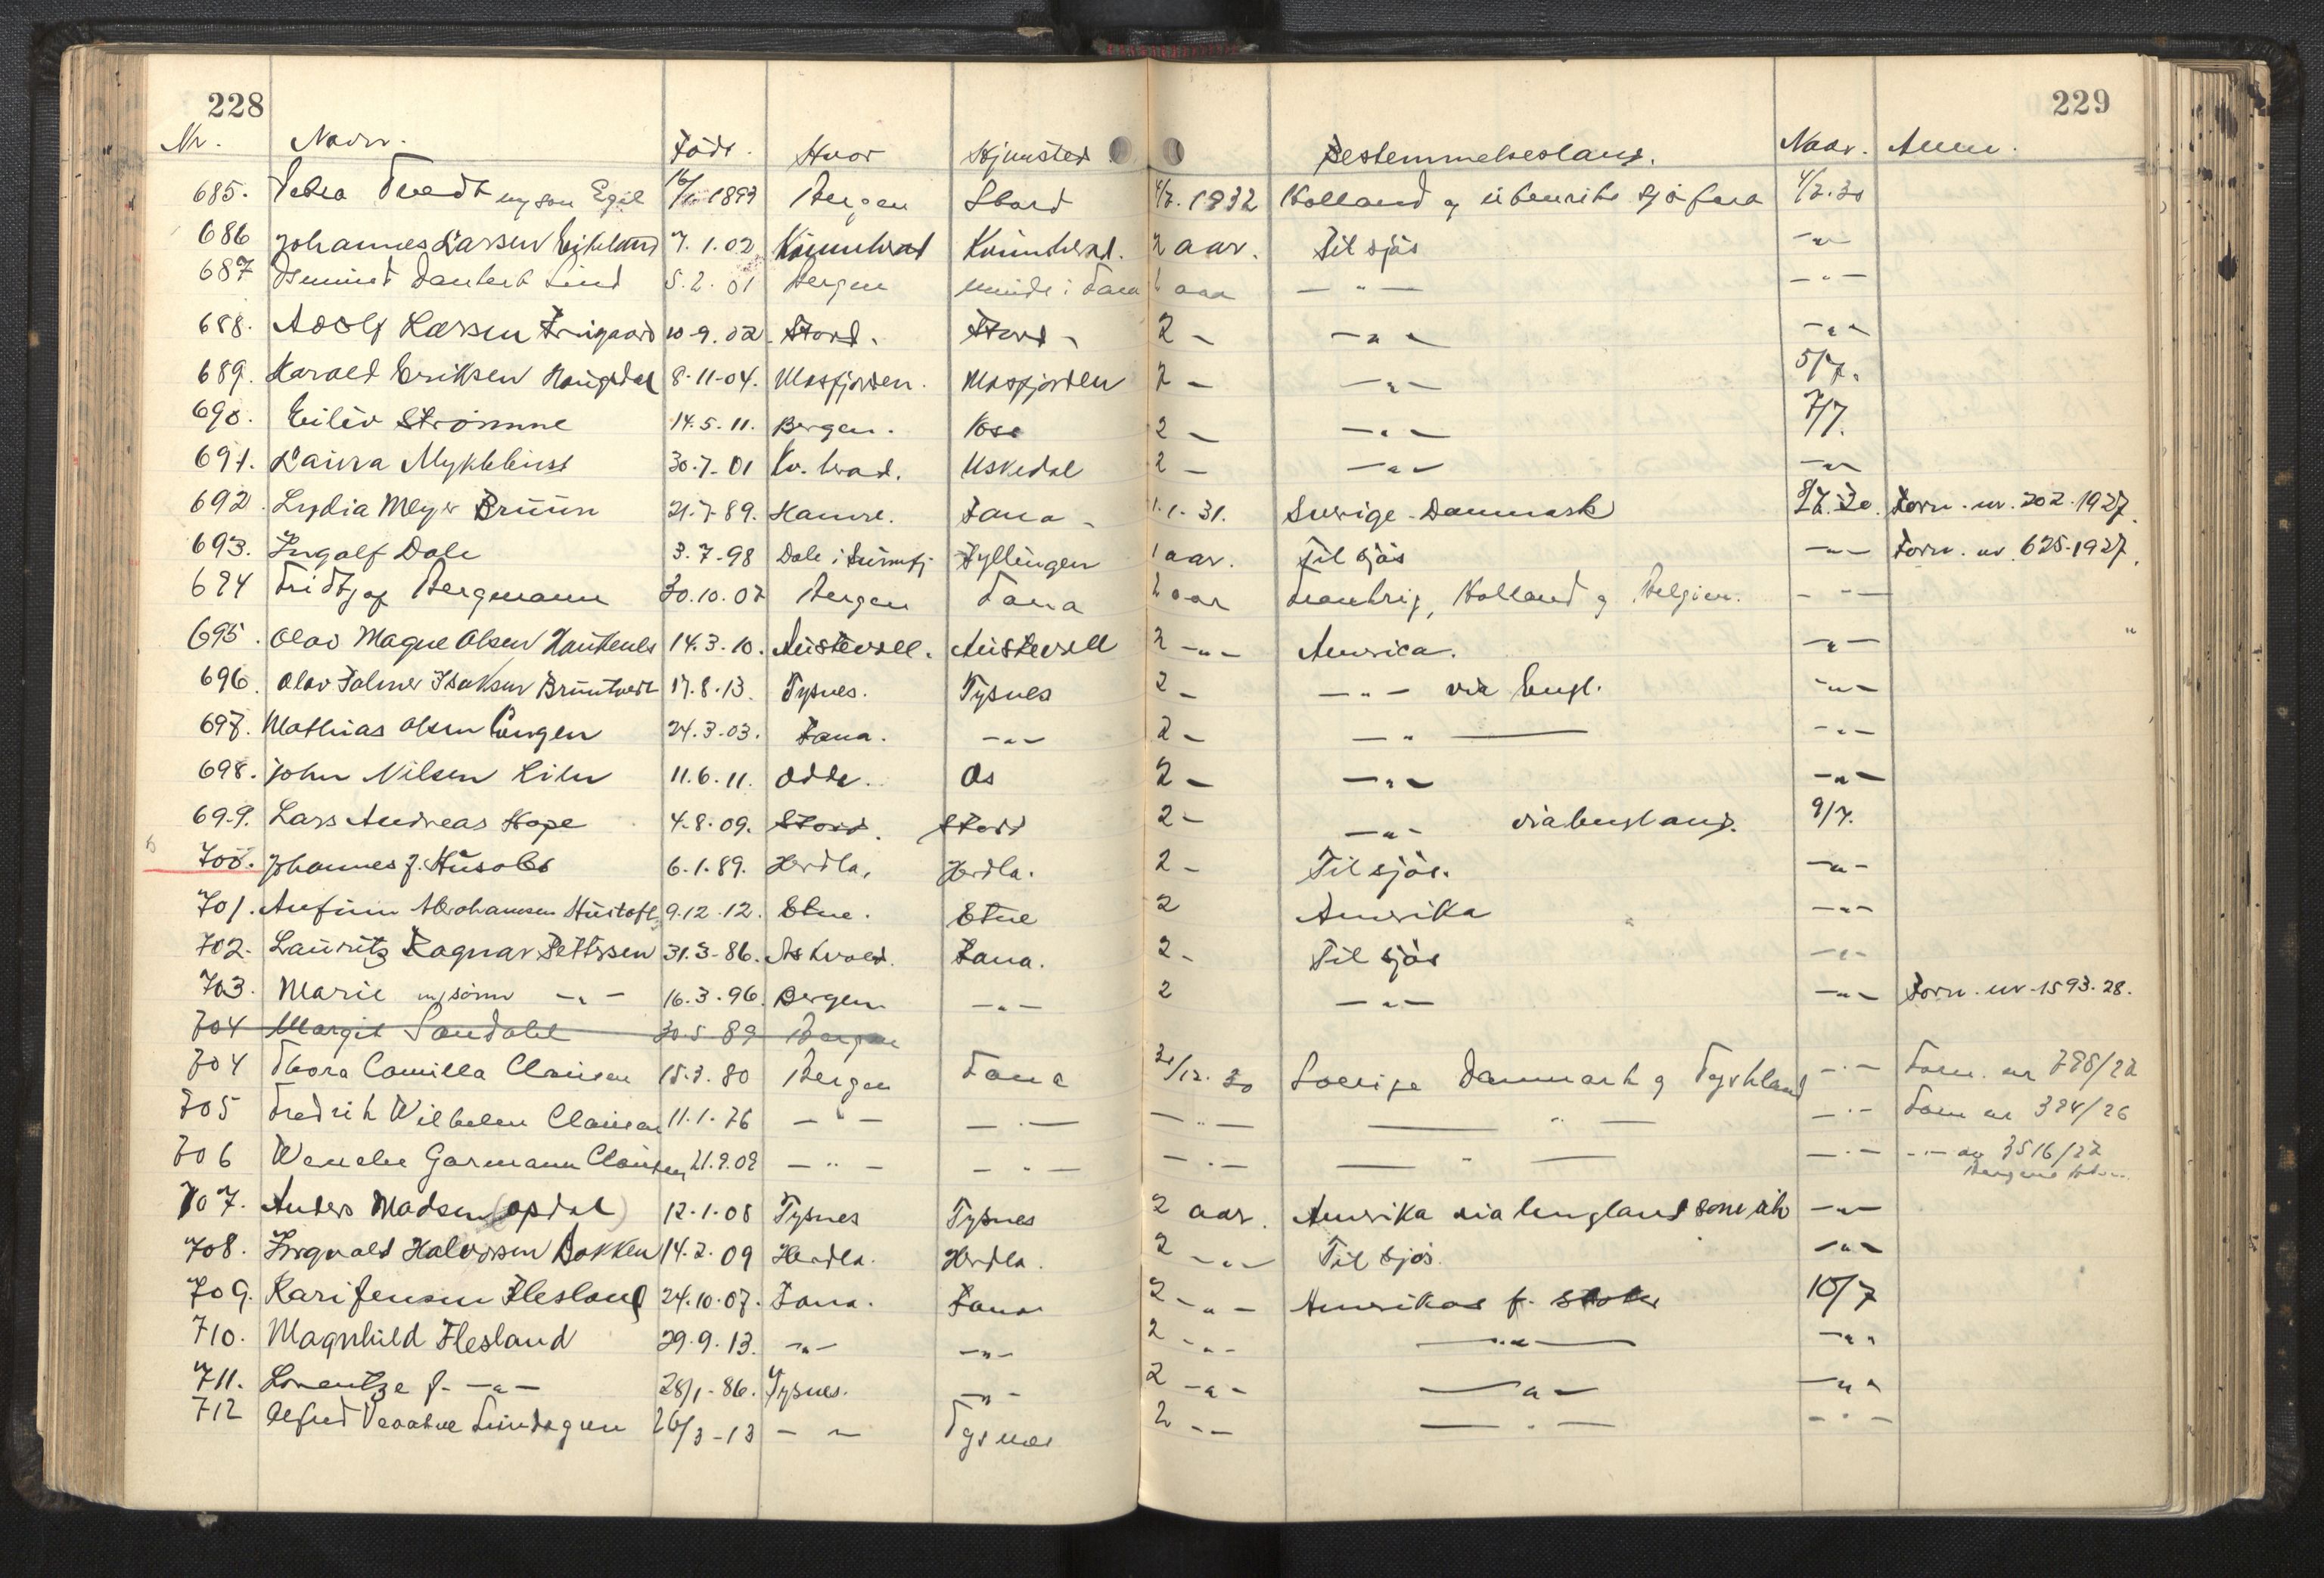 228 229
Nr. Navn. Föde. Hvor Hjemsted Bestemmelsesland. Naar. Anm.
685. Petra Tvedt m/ son Egil 16/1 1893 Bergen Stord 4/7. 1932 Holland og utenriks sjöfara 4/7.30
686 Johannes Larsen Eikeland 7.1.02 Kvinnherad Kvinnherad. 2 aar. Til sjös -"-
687 Lind 5.2.01 Bergen i Fana aar -"- -"-
688. Adolf Larsen 10-9.02. Stord. Stord - 2 - -"- -"-
689. Harald Eriksen Haugsdal 8-11-04. Masfjorden. Masfjorden 2 - -"- 5/7.
690. Eiliv Strömme 14.5.11. Bergen. Voss 2 - -"- 7/7.
691. Laura Myklebust 30-7-01 Kv. herad. Uskedal 2 - -"- -"-
692. Lydia Meyer Brüun 21-7-89. Hamre. Fana - 1-1-31. Sverige-Danmark 8/7.30. Forn. nr. 202-1927.
693. Ingolf Dale 3.7-98 Dale i Sunnfj Fyllingen 1 aar. Til sjös -"- Forn. nr. 625-1927.
694 Fridtjof Bergmann 30.10.07 Bergen Fana 2 aar Frankrig, Holland og Belgien. -"-
695. Olav Magne Olsen 14.3.10. Austevoll. Austevoll 2 -"- Amerika. -"- "
696. Olav Falmer Isaksen Bruntveit 17.8.13. Tysnes. Tysnes 2 - -"- via Engl. -"-
697. Mathias Olsen 24.3.03. Fana. -"- 2 - -"- -"-
698. John Nilsen Lien 11.6.11. Odda. Os 2 - -"- -"-
699. Lars Andreas Hope 4-8-09. Stord. Stord 2 - -"- via England. 9/7.
700. Johannes J. Husebö 6.1.89. Herdla. Herdla. 2 - Til sjös. -"-
701. Anfinn Abrahamsen Hustoft 9.12.12. Etne. Etne 2 Amerika -"-
702. Lauritz Ragnar Pettersen 31.3-86. Askvold. Fana. 2 - Til sjös -"-
703. Marie m/sönn -"- 16.3.96. Bergen -"- 2 -"- -"- Forn. nr-1593-28.
704 Margit Sandahl 30.5 89 Bergen
704 Thora Camilla Clausen 15.3.80 Bergen Fana 31/12.30 Sverige Danmark og Tyskland -"- Forn. nr 798/22
705 Fredrik Wilhelm Clausen 11.1.76 -"- -"- -"- -"- -"- Forn nr 384/26
706 Wenche Garmann Clausen 21.9.09 -"- -"- -"- -"- -"- -"- nr 3516/22
Bergens
707. Anders Madsen (Opdal) 12-1-08 Tysnes Tysnes 2 aar. Amerika via England -"-
708. Ingvald Halvorsen Bakken 14.2.09 Herdla. Herdla. 2 -"- Til sjös. -"-
709. Kari Jensen Flesland 24.10.07. Fana. Fana 2 -"- Amerikas f. stater 10/7
710. Magnhild Flesland 29.9.13. -"- -"- 2 -"- -"- -"-
711. Lorentze J. -"- 28/1-86. Tysnes. -"- 2 -"- -"- -"-
712 Alfred 26/3-13 - - Tysnes 2 -- -"- -"-